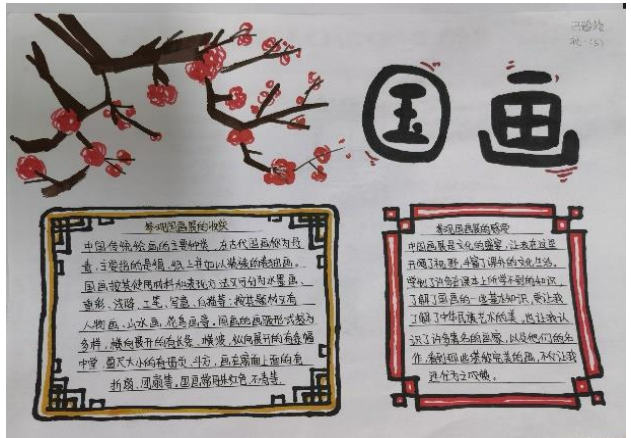 国画
参观国画展的收获
中国传统绘画的主要种类，在古代国画称为丹
青，主要指的是绢、纸上并加以装裱的卷轴画。
国画按其使用材料和表现方法又可分为水墨画、
重彩、浅绛、工笔、写意、白描等；按其题材又有
人物画、山水画、花鸟画等。国画的画幅形式较为
多样，横向展开的有长卷、横披，纵向展开的有条幅
中堂，盈尺大小的有册页、斗方，画在扇面上面的有
折扇、团扇等。
参观国画展的感受
中国画展是文化的盛宴，让我在这里
开阔了视野，丰富了课外的文化生活。
学到了许多在课本上所学不到的知识，
了解了国画的一些基础知识，更让我
了解了中华民族艺术的美，也让我认
识了许多著名的画家，以及他们的名
作，看到那些堪称完美的画，不仅让我